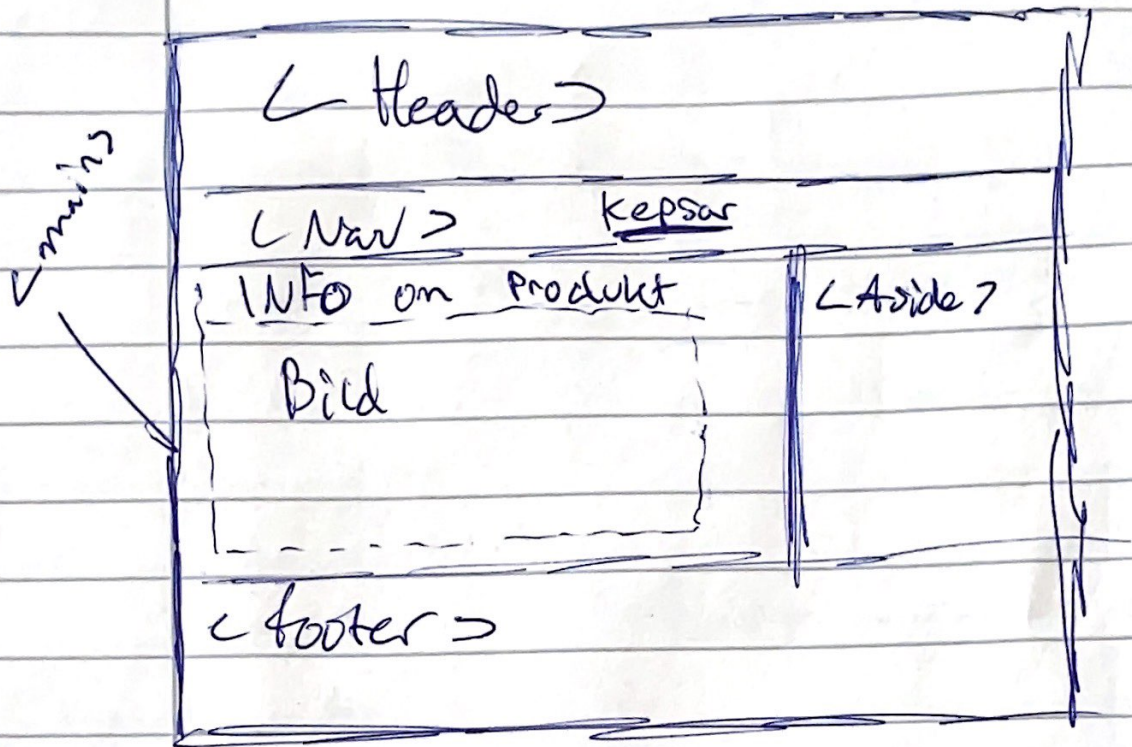 <Header>
<Nav> Kepsar
<main>
INFO om Produkt
<Aside>
Bild
<footer>